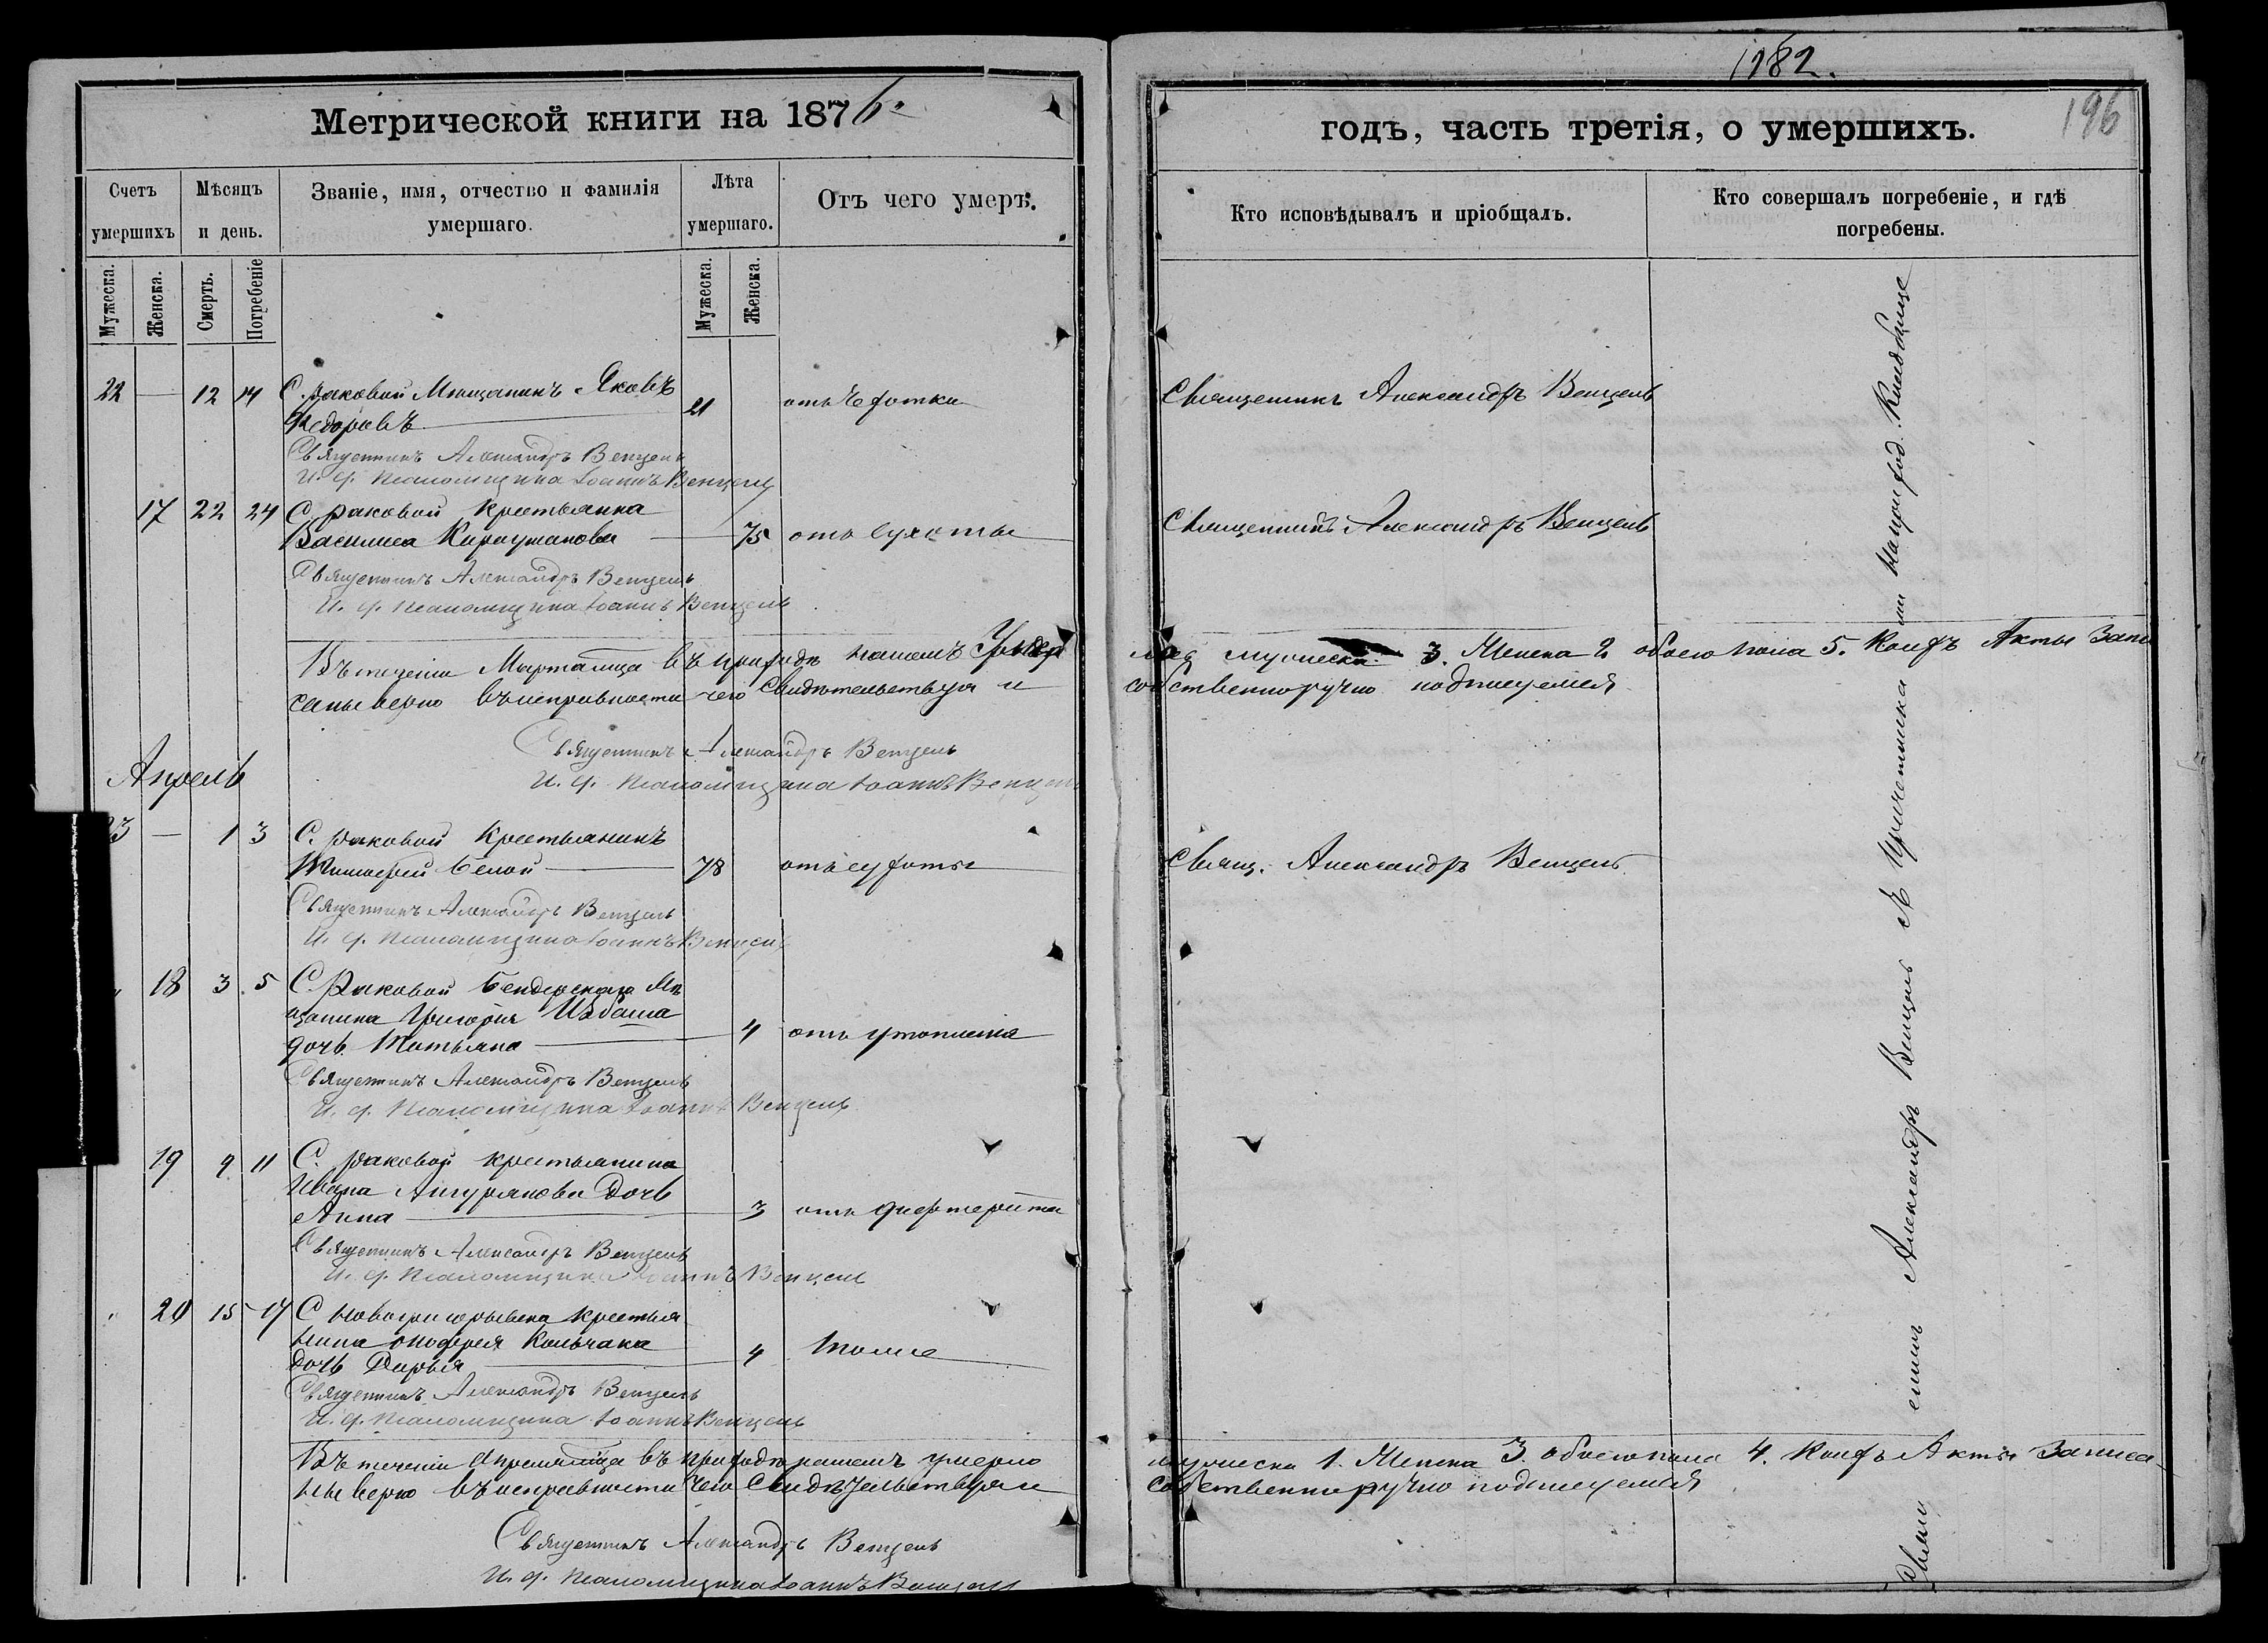 Метрической книги на 1876.
Счетъ умершихъ
Мѣсяцъ и день.
Званіе, имя, отчество и фамилія умершаго.
Лѣта умершаго.
Отъ чего умеръ.
Мужеска.
Женска.
Смерть.
Погребеніе
Мужеска.
Женска.
22 — 12 14 С. Раковой Мещанинъ Яковъ
Федоровъ 21 отъ Чехотки
Священникъ Александръ Венцель
И. д. псаломщика Іоаннъ Венцель
17 22 24 С. Раковой Крестьянка
Василиса 75 отъ сухоты
Священникъ Александръ Венцель
И. д. псаломщика Іоаннъ Венцель
Въ теченіи Марта м-ца въ приходѣ нашемъ Умер
саны верно въ исправности чего Свидѣтельствуя и
Священникъ Александръ Венцель
И. д. псаломщика Іоаннъ Венцель
Апрель
23 — 1 3 С. Раковой Крестьянинъ
Тимофей Белой 78 отъ сухоты
Священникъ Александръ Венцель
И. д. псаломщика Іоаннъ Венцель
18 3 5 С. Раковой Бендерскаго Мѣ
щанина Григорія
дочь Татьяна 4 отъ
Священникъ Александръ Венцель
И. д. псаломщика Іоаннъ Венцель
19 9 11 С. Раковой крестьянина
Ивана дочь
Анна 3 отъ дифтерита
Священникъ Александръ Венцель
И. д. псаломщика Іоаннъ Венцель
20 15 17 С Новогригорьевка крестья
нина Онофрея Кольчака
дочь Дарья 4 тоже
Священникъ Александръ Венцель
И. д. псаломщика Іоаннъ Венцель
Въ теченіи Апреля м-ца въ приходѣ нашемъ умерло
ны верно въ исправности чего Свидѣтельствуя и
Священникъ Александръ Венцель
И. д. псаломщика Іоаннъ Венцель
1182.
196
годъ, часть третія, о умершихъ.
Кто исповѣдывалъ и пріобщалъ.
Кто совершалъ погребеніе, и гдѣ погребены.
Священникъ Александръ Венцель
Священникъ Александръ Венцель
мужеска 3. Женска 2 обоего пола 5. Коихъ Акты Запи
собственноручно подписуемся
Свящ. Александръ Венцель
мужеска 1. Женска 3. обоего пола 4. Коихъ Акты Записа-
собственноручно подписуемся
Александръ Венцель
Кладбище